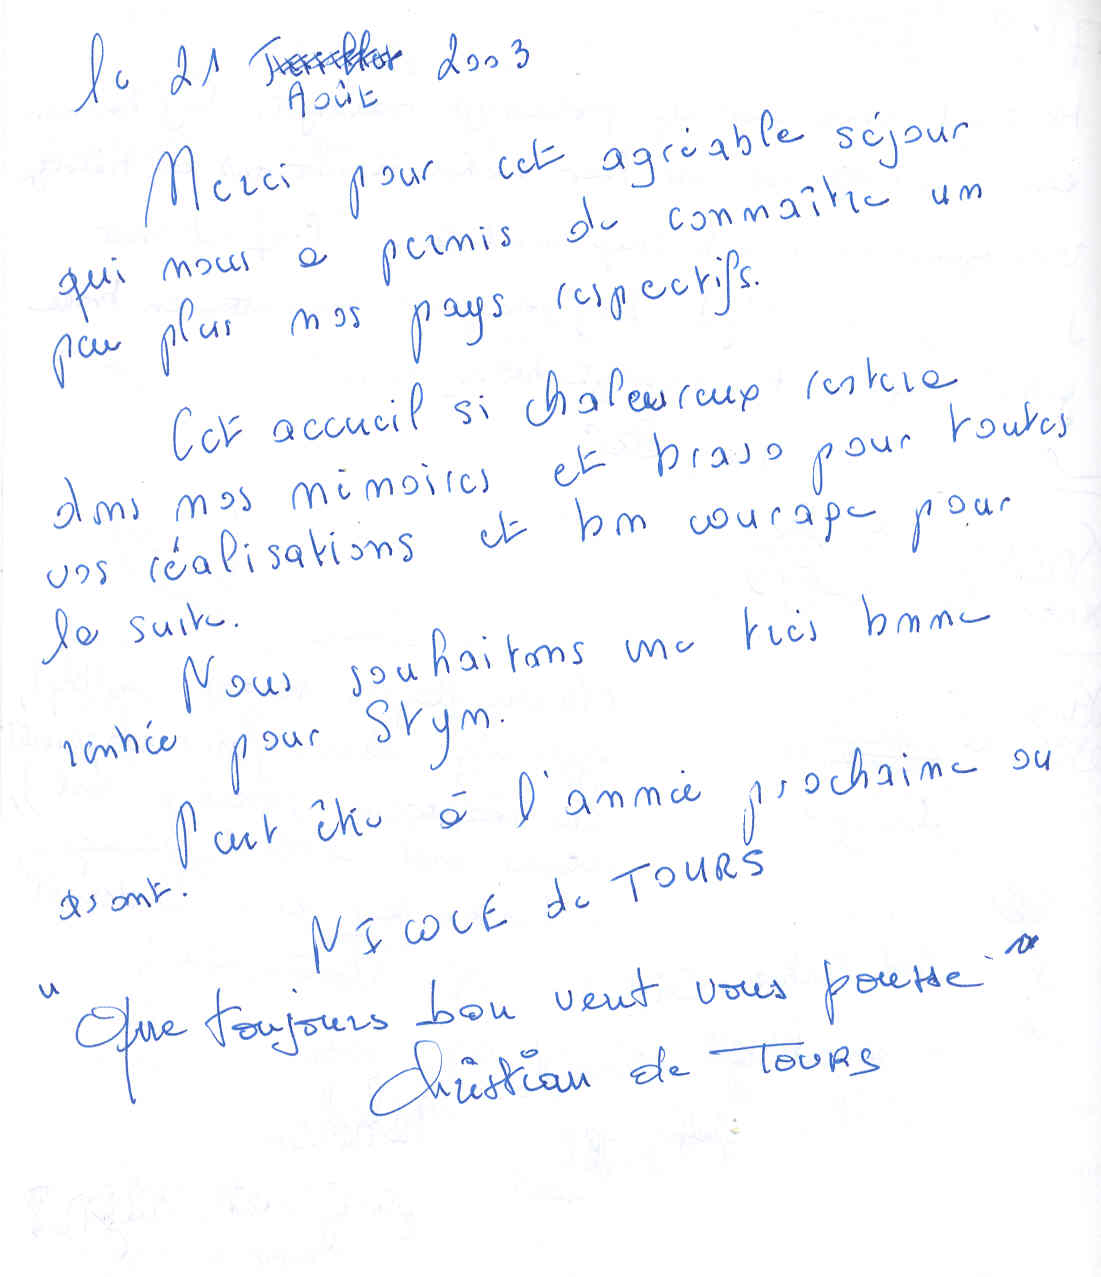 le 21 Juillet 2003
Août
Merci pour cet agréable séjour
qui nous a permis de connaître un
peu plus nos pays respectifs.
Cet accueil si chaleureux restera
dans nos mémoires et bravo pour toutes
vos réalisations et bon courage pour
la suite.
Nous souhaitons une très bonne
rentrée pour Stym.
Peut être à l'année prochaine ou
avant.
NICOLE de TOURS
"Que toujours bon vent vous pousse"
Christian de TOURS